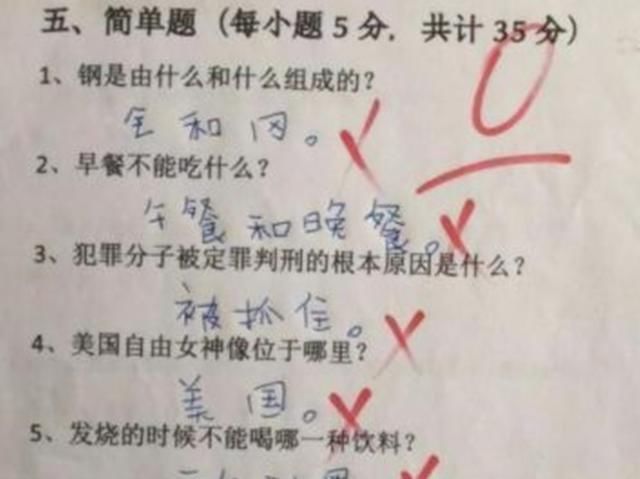 五、简单题（每小题5分，共计35分）
0
1、钢是由什么和什么组成的？
金和冈。
2、早餐不能吃什么？
午餐和晚餐。
3、犯罪分子被定罪判刑的根本原因是什么？
被抓住。
4、美国自由女神像位于哪里？
美国。
5、发烧的时候不能喝哪一种饮料？